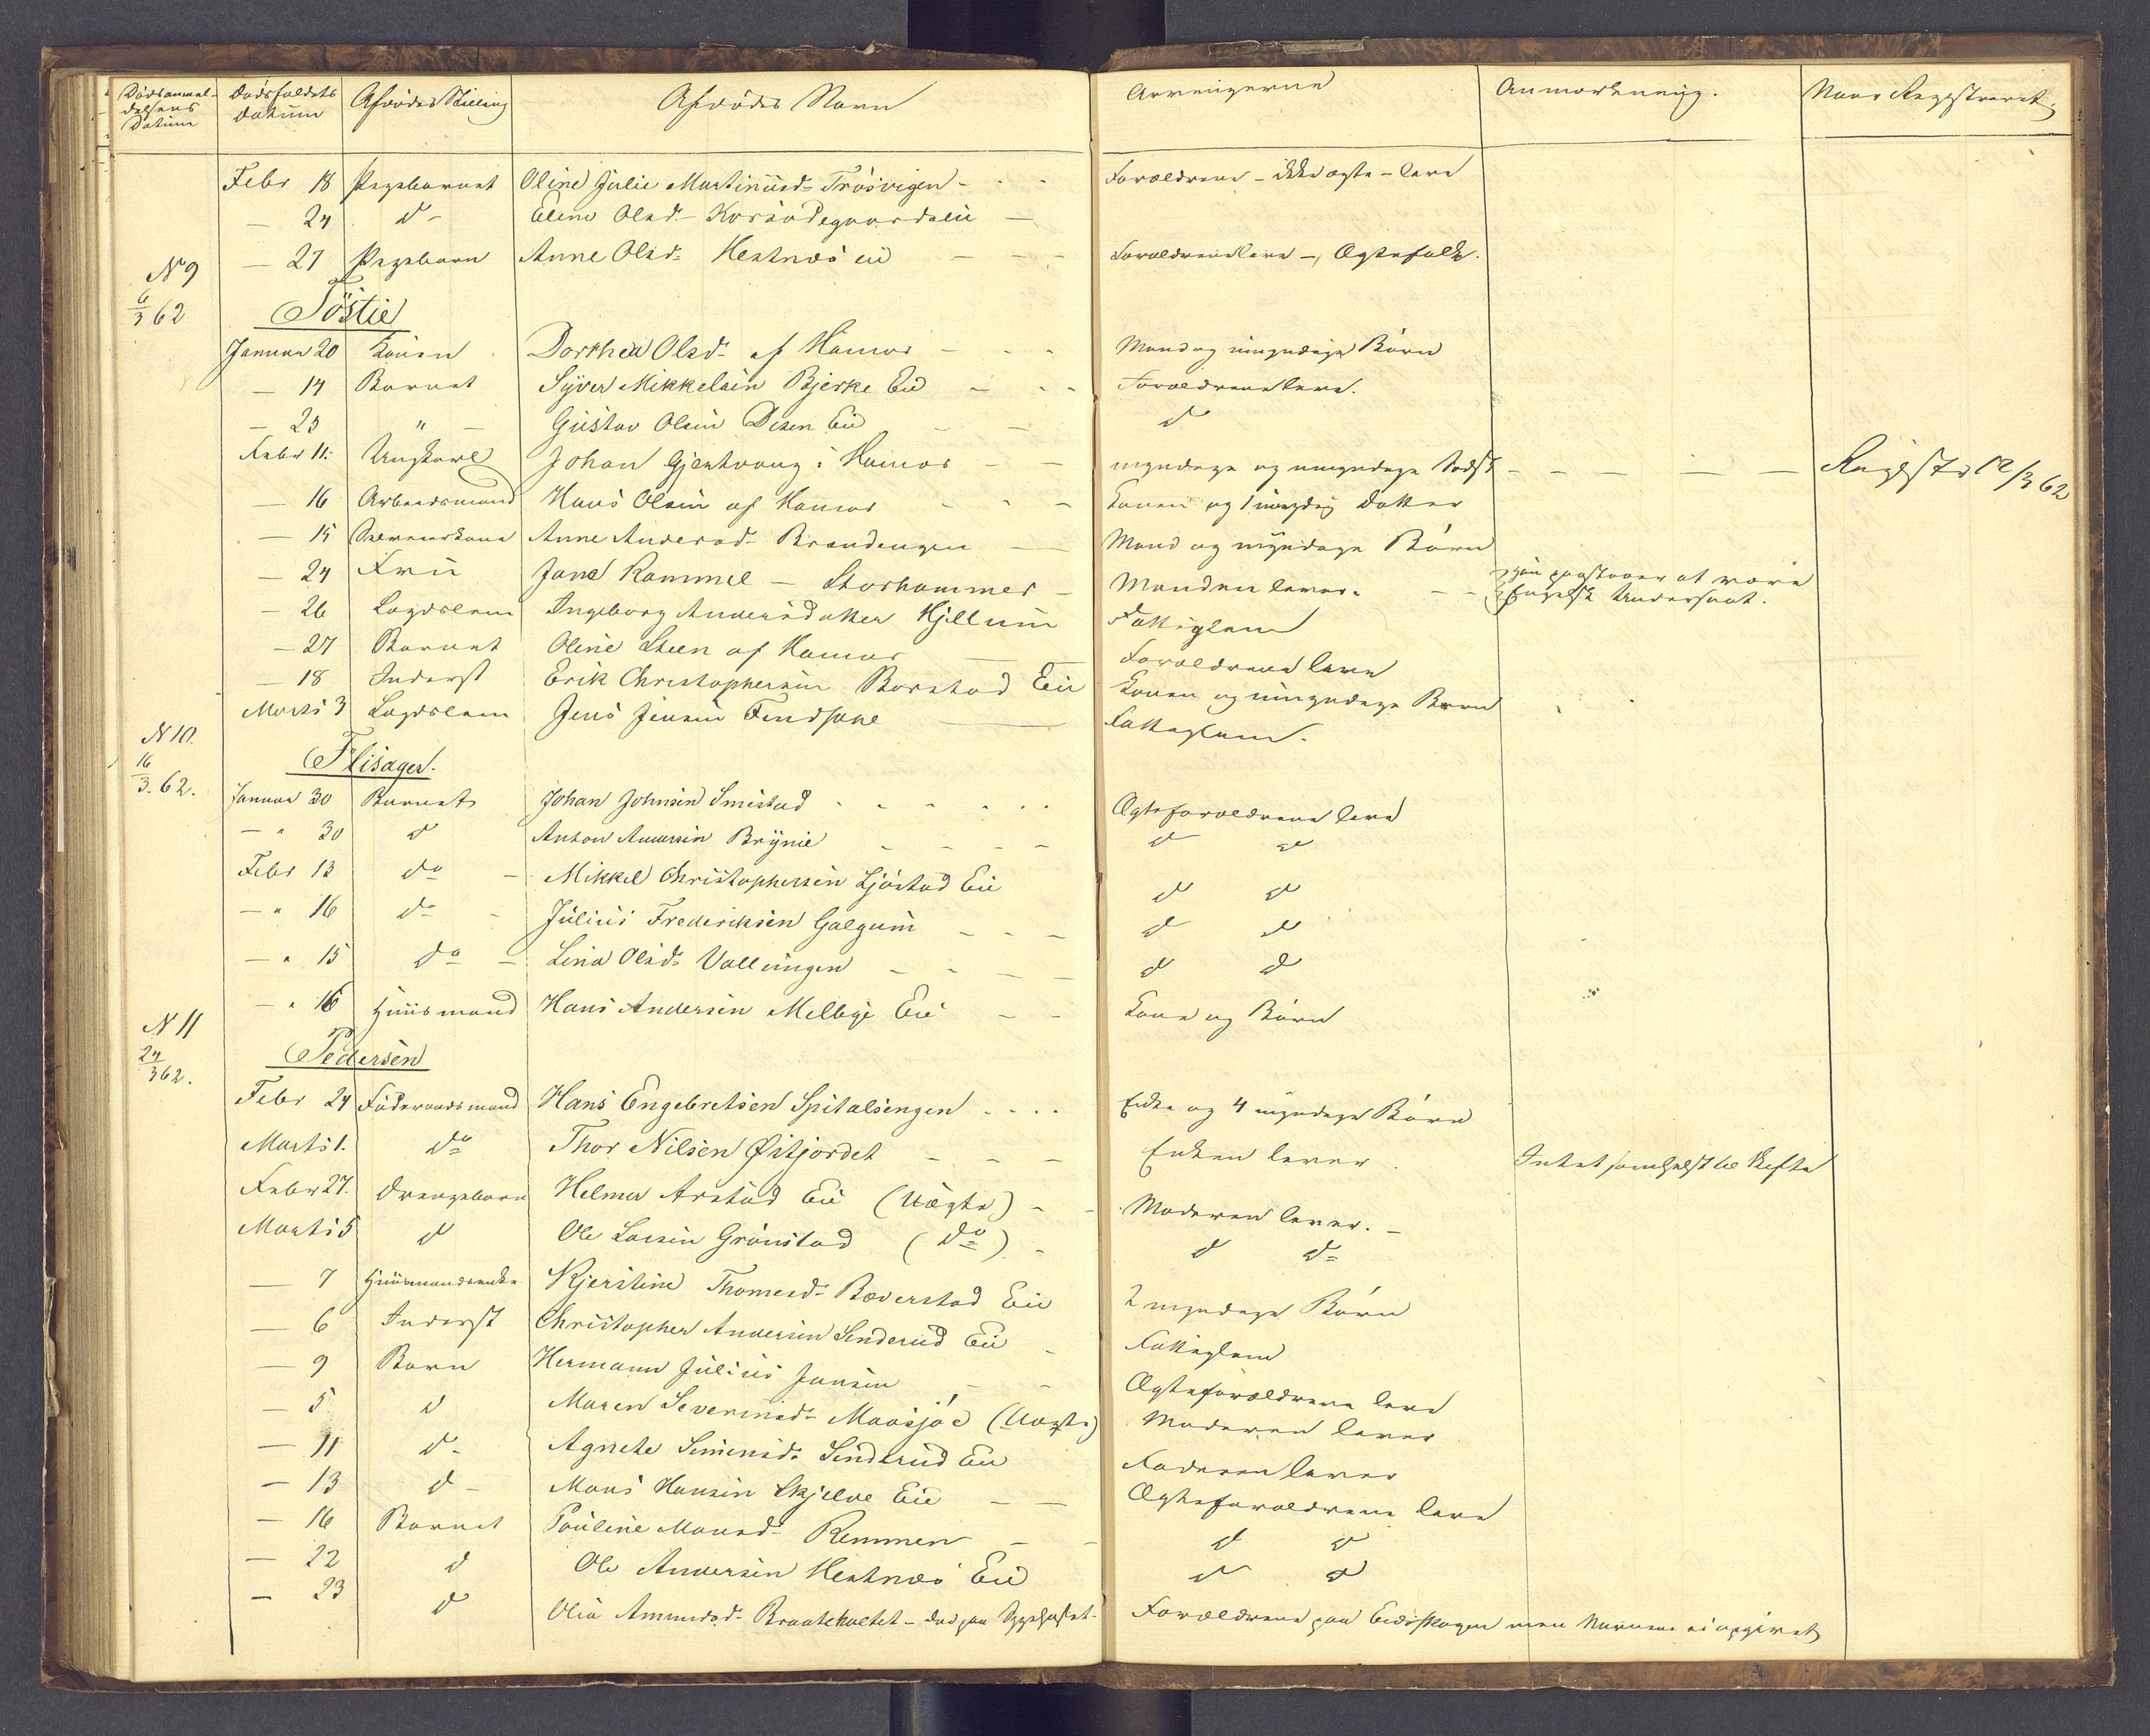 Dødsanmel-
delsens
Datum
Dødsfaldets
Datum
Afdødes Stilling
Afdødes Navn
Arvingerne
Anmærkning.
Naar Registreret.
Febr 18 Pigebarnet Oline Julie Martinusd. Frösvigen - Forældrene - ikke ægte - leve
— 24 do Eline Olsd.
— 27 Pigebarn Anne Olsd. Hestnæs eie - - - Forældrene leve -, Ægtefolk.
N 9
6/3 62
Töstie
Januar 20 Konen Dorthea Olsd. af Hamar - - - Mand og umyndige Børn
— 14 Barnet Syver Mikkelsen Bjerke Eie - - - Forældrene leve.
— 23 " — Gustav Olsen Disen Eie - - do
Febr 11. Ungkarl Johan Gjertvang i Hamar - - myndige og umyndige Sødsk - - - - - Registr 12/3 62
— 16 Arbeidsmand Hans Olsen af Hamar - - - Konen og 1 myndig Datter
— 15 Anne Andersd. Brendengen - - Mand og myndige Børn
— 24 Frue Jane Rammel — Storhammer - Manden lever. - - han paastaaer at være
Engelsk Undersaat.
— 26 Lægdslem Ingeborg Andersdatter Hjellum Fattiglem
— 27 Barnet Oline Steen af Hamar — Forældrene leve
— 18 Inderst Erik Christophersen Borstad Eie Konen og umyndige Børn
Marts 3 Lægdslem Jens Jensen Finds — Fattiglem.
N 10.
16/3. 62.
Flisager.
Januar 30 Barnet Johan Johnsen Smistad - - - - Ægteforældrene leve
— " 30 do Anton Andersen Brynie - - - - do do
Febr 13 do - Mikkel Christophersen Ljøstad Eie do do
— " 16 do - Julius Frederiksen Galgum - - - do do
— " 15 do - Lina Olsd. Vollungen - - - - do do
— " 16 Huusmand Hans Andersen Melbye Eie - - Kone og Børn
N 11
24/3 62.
Pedersen
Febr 24 Föderaadsmand Hans Engebretsen Spitalsengen - - - - Enke og 4 myndige Børn
Marts 1. do Thor Nilsen Østjordet - - - Enken lever. Intet somhelst til Skifte
Febr 27. Drengebarn Helmer Arstad Eie (Uægte) - - Moderen lever. -
Marts 5 do Ole Larsen Grönstad (do) - do do
— 7 Huusmandsenke Kjerstine Thomesd. Bæverstad Eie 2 myndige Børn
— 6 Inderst Christopher Andersen Sinderud Eie - Fattiglem
— 9 Barn Hermann Julius Jansen - - Ægteforældrene leve
— 5 do Maren Severinsd. Maasjøe (Uægte) Moderen lever
— 11 do Agnete Simensd. Sinderud Eie Faderen lever
— 13 do - Mons Hansen Skjelve Eie - - Ægteforældrene leve
— 16 Barnet Pouline Monsd. Remmen - - do do
— 22 do Ole Andersen Hestnæs Eie do do
— 23 do Olia Amundsd. Braateholtet - død paa Sygehuset - Forældrene paa Eidskogen men Navnene ei opgivet